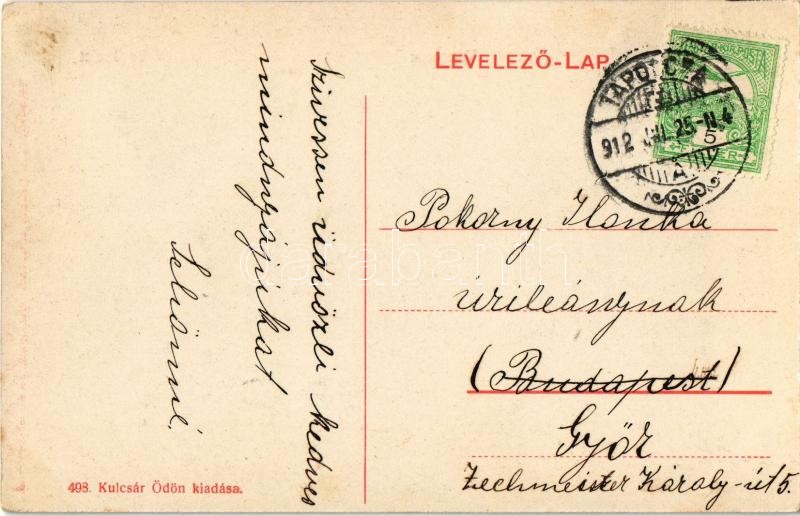 LEVELEZŐ-LAP
TAPOLCZA
912 JUL. 25-N.4
A
5
Pokorny Ilonka
úrileánynak
(Budapest)
Győr
Zechmeister Károly-út 5.
Szivessen üdvözli kedves
mindnyájukat
498. Kulcsár Ödön kiadása.
darabanth